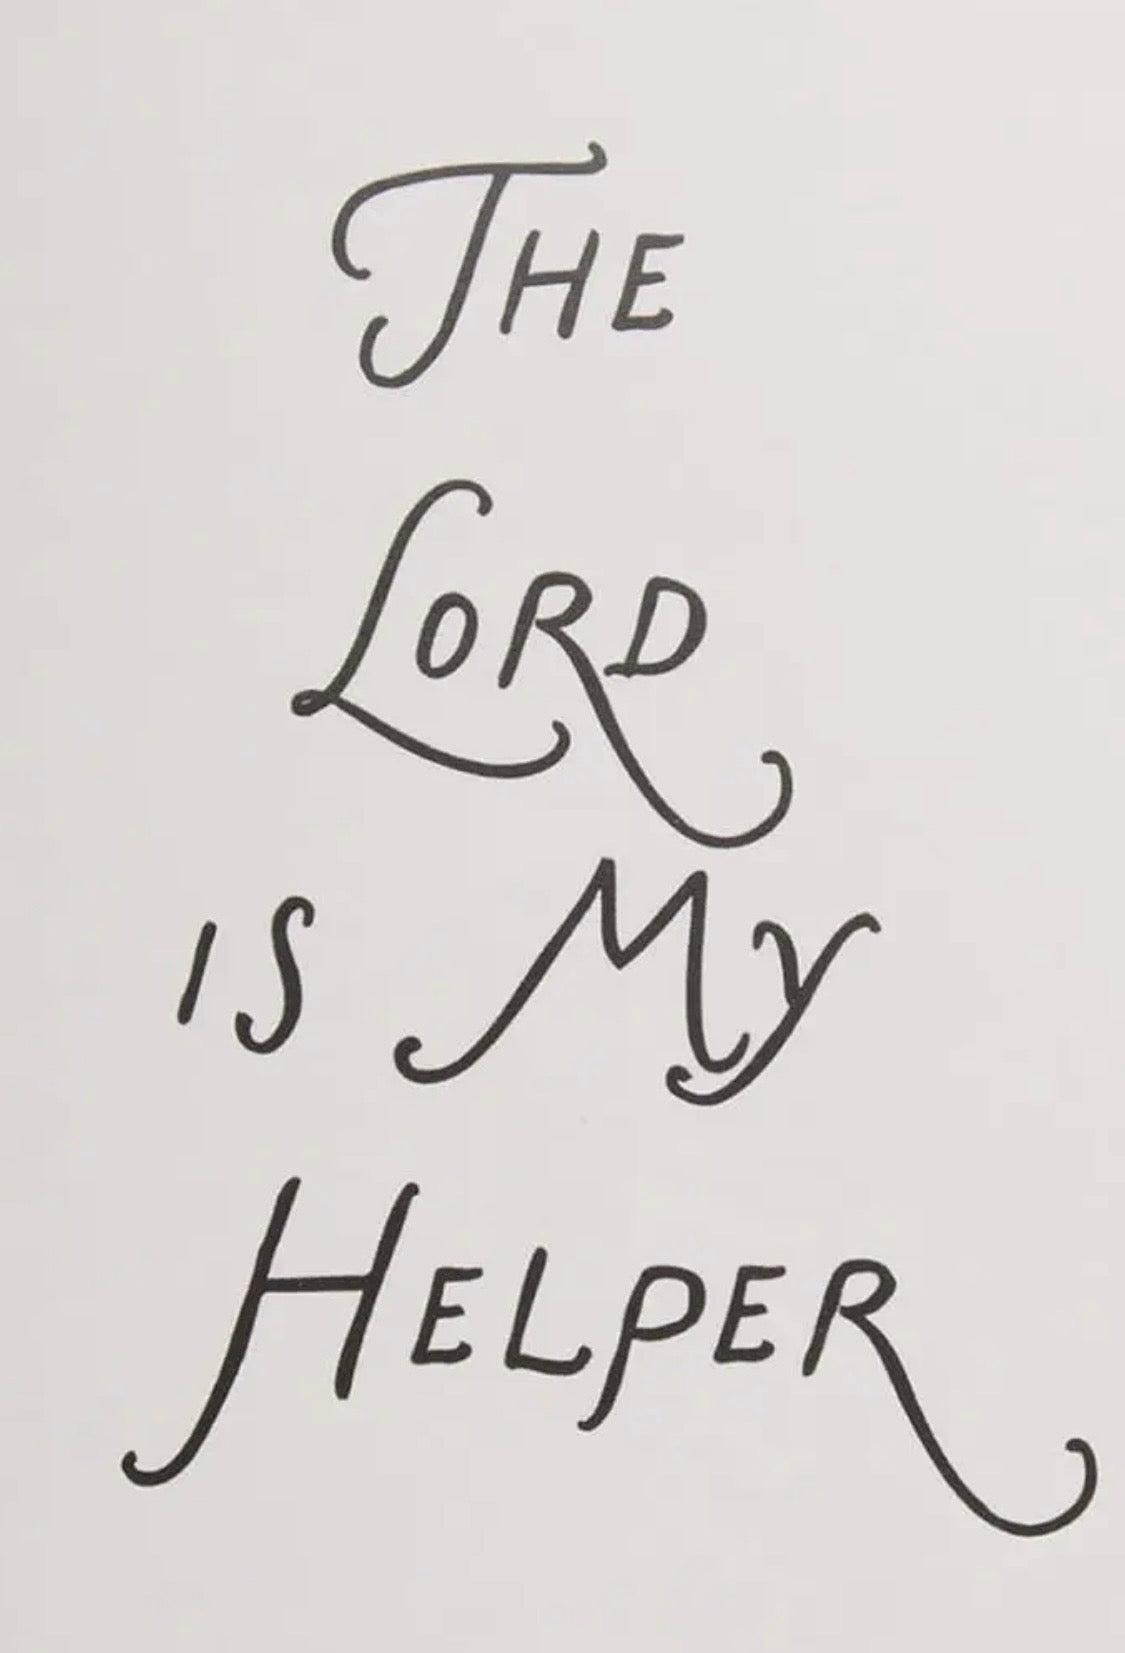 THE
LORD
IS MY
HELPER